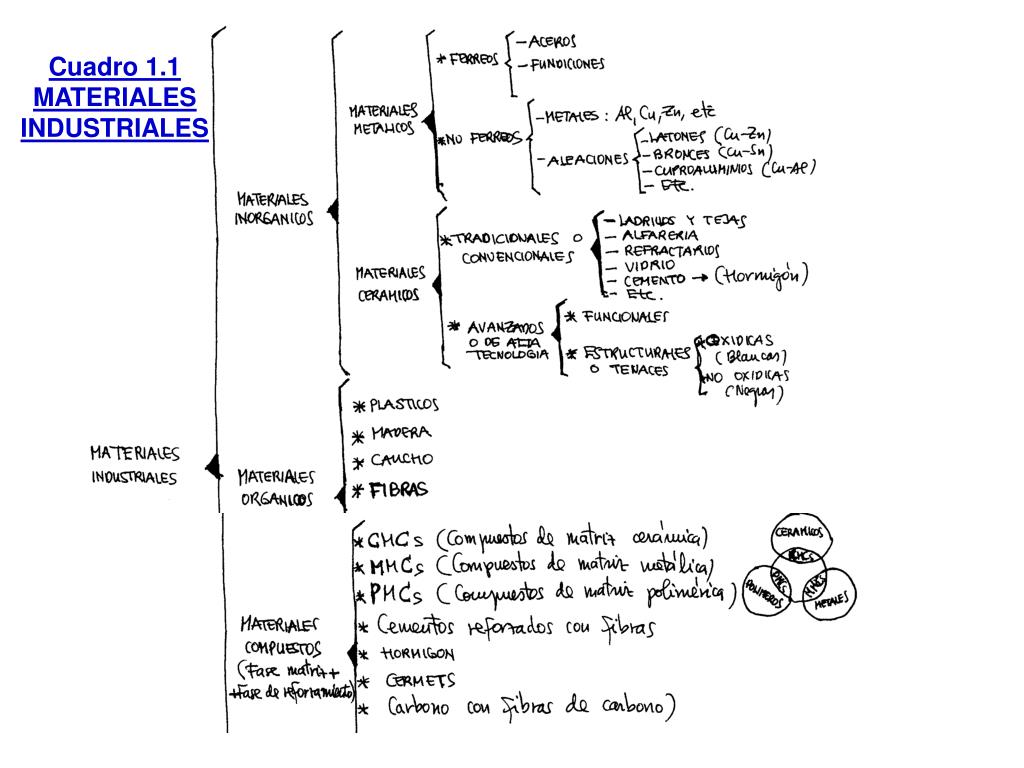 Cuadro 1.1
MATERIALES
INDUSTRIALES
MATERIALES
INDUSTRIALES
MATERIALES
INORGANICOS
MATERIALES
METALICOS
* FERREOS
- ACEROS
- FUNDICIONES
* NO FERREOS
- METALES : Al, Cu, Zn, etc
- ALEACIONES
- LATONES (Cu-Zn)
- BRONCES (Cu-Sn)
- CUPROALUMINIOS (Cu-Al)
- Etc.
MATERIALES
CERAMICOS
* TRADICIONALES O
CONVENCIONALES
- LADRILLOS Y TEJAS
- ALFARERIA
- REFRACTARIOS
- VIDRIO
- CEMENTO → (Hormigón)
- Etc.
* AVANZADOS
O DE ALTA
TECNOLOGIA
* FUNCIONALES
* ESTRUCTURALES
O TENACES
* OXIDICAS
(Blancas)
* NO OXIDICAS
(Negras)
MATERIALES
ORGANICOS
* PLASTICOS
* MADERA
* CAUCHO
* FIBRAS
MATERIALES
COMPUESTOS
(Fase matriz +
+ Fase de reforzamiento)
* CMCs (Compuestos de matriz cerámica)
* MMCs (Compuestos de matriz metálica)
* PMCs (Compuestos de matriz polimérica)
* Cementos reforzados con fibras
* HORMIGON
* CERMETS
* Carbono con fibras de carbono)
CERAMICOS
CMCs
PMCs
MMCs
POLIMEROS
METALES